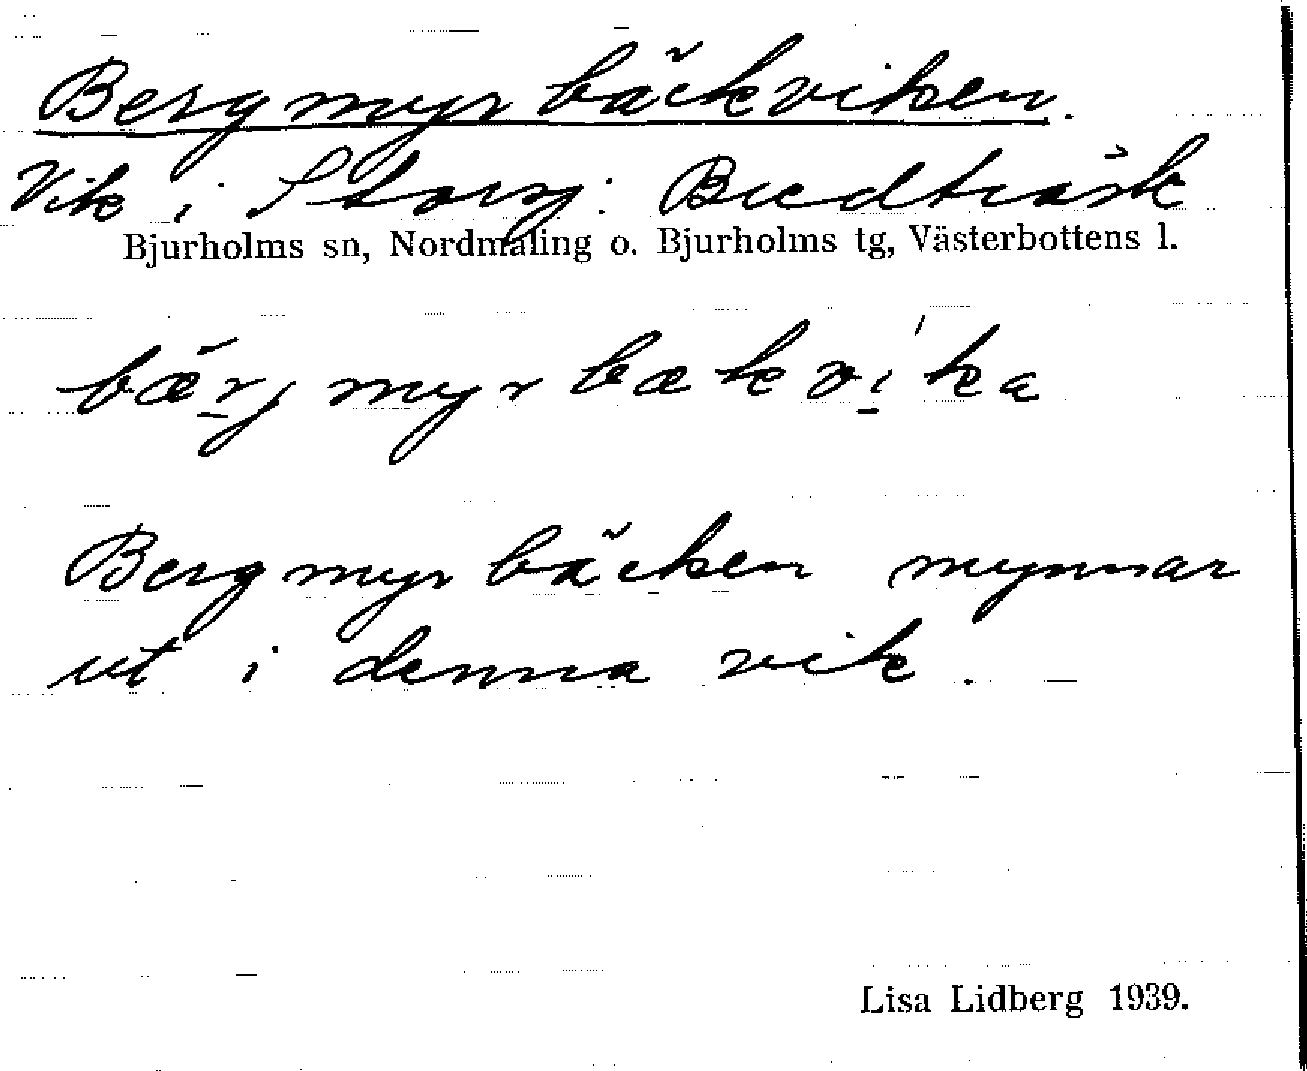 Bergmyrbäckviken.
Vik i Storsj. Bredträsk
Bjurholms sn, Nordmaling o. Bjurholms tg, Västerbottens l.
bærjmyrbækvika
Bergmyrbäcken mynnar
ut i denna vik.
Lisa Lidberg 1939.